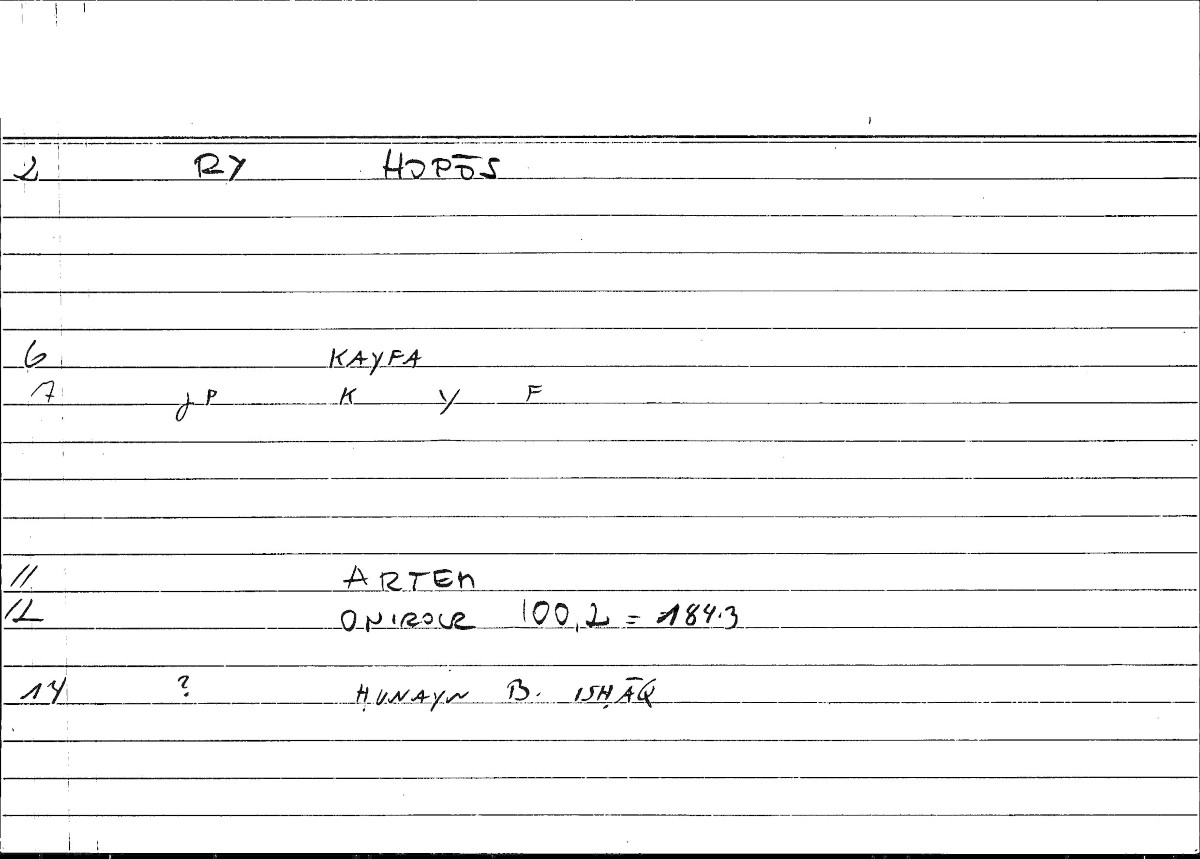 2 RY HOPŌS
6 KAYFA
7 JP K Y F
11 ARTEM
12 ONIROCR 100,2 = 184.3
14 ? ḤUNAYN B. ISḤĀQ